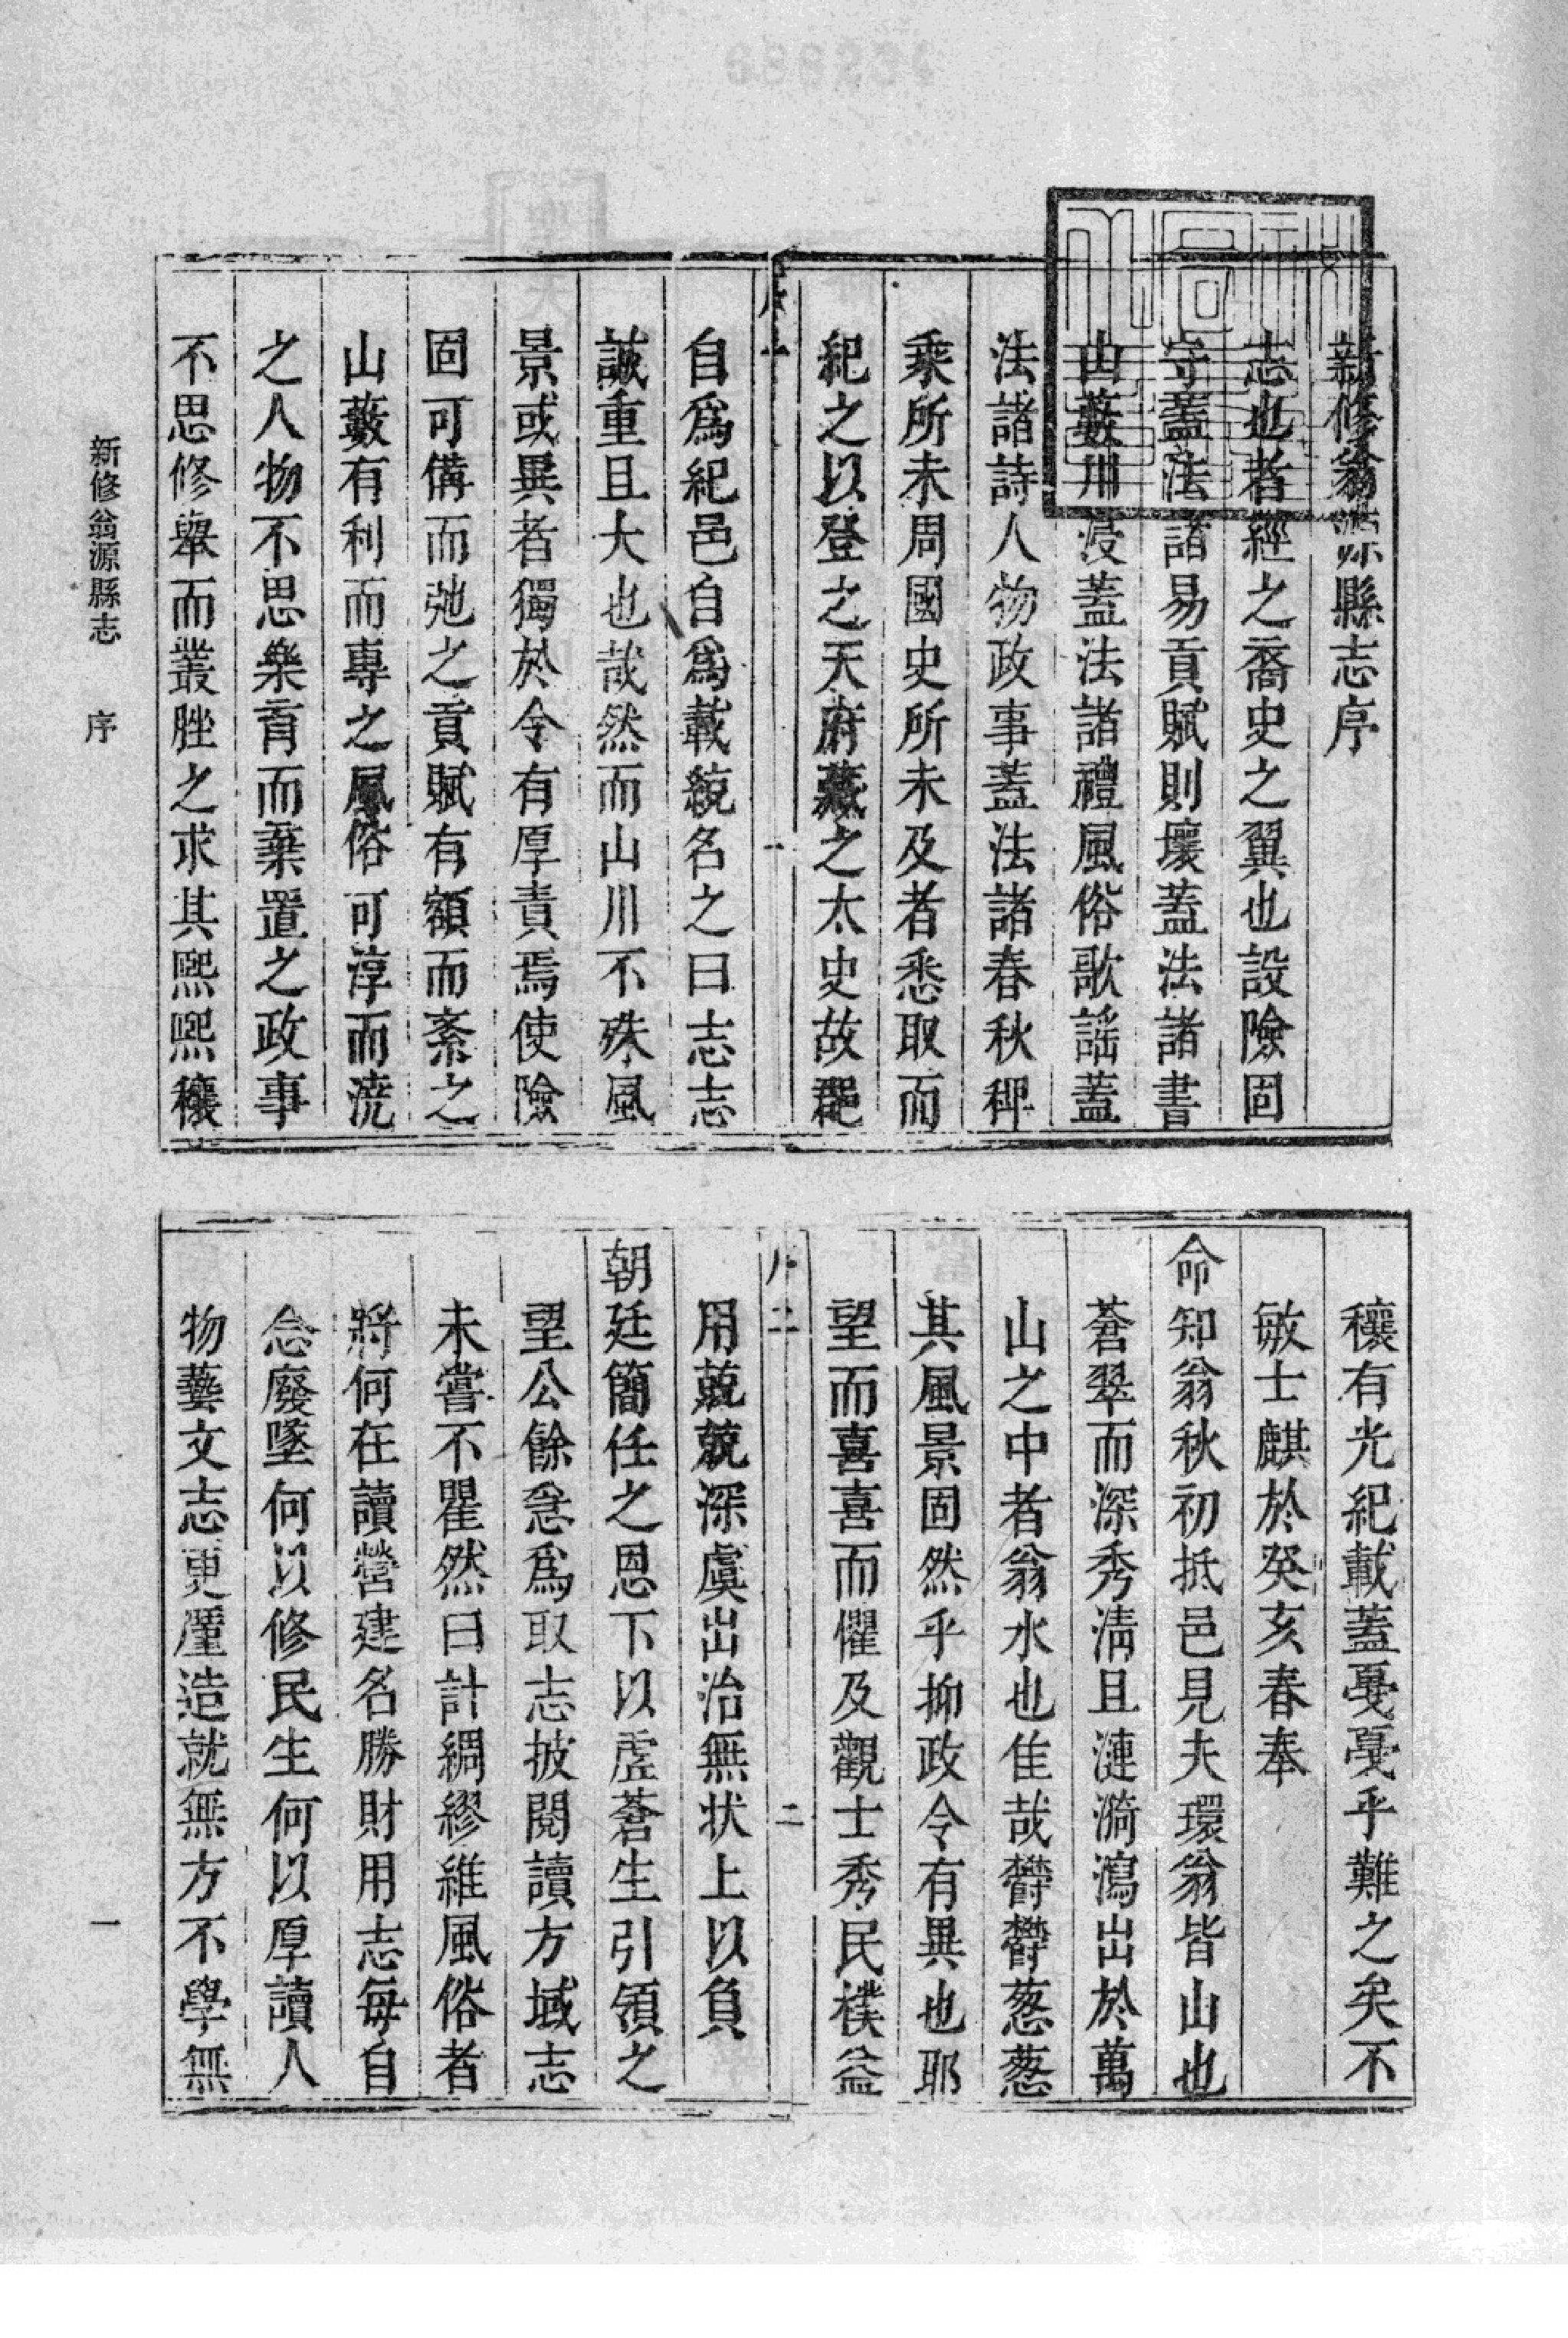 新修翁源縣志序
志也者經之裔史之翼也設險固
守蓋法諸易貢賦則壤蓋法諸書
山藪川浸蓋法諸禮風俗歌謡蓋
法諸詩人物政事蓋法諸春秋稗
乘所未周國史所未及者悉取而
紀之以登之天府藏之太史故郡
序一
一
自爲紀邑自爲載統名之曰志志
誠重且大也哉然而山川不殊風
景或異者獨於令有厚責焉使險
固可備而弛之貢賦有額而紊之
山藪有利而專之風俗可淳而澆
之人物不思樂育而棄置之政事
不思修舉而叢脞之求其熙熙穰
穰有光紀載蓋戞戞乎難之矣不
敏士麒於癸亥春奉
命知翁秋初抵邑見夫環翁皆山也
蒼翠而深秀淸且漣漪瀉出於萬
山之中者翁水也佳哉欝欝葱葱
其風景固然乎抑政令有異也耶
望而喜喜而懼及觀士秀民樸益
二
二
用兢兢深虞出治無状上以負
朝廷簡任之恩下以虛蒼生引領之
望公餘急爲取志披閱讀方域志
未嘗不瞿然曰計綢繆維風俗者
將何在讀營建名勝財用志每自
念廢墜何以修民生何以厚讀人
物藝文志更懼造就無方不學無
新修翁源縣志 序 一